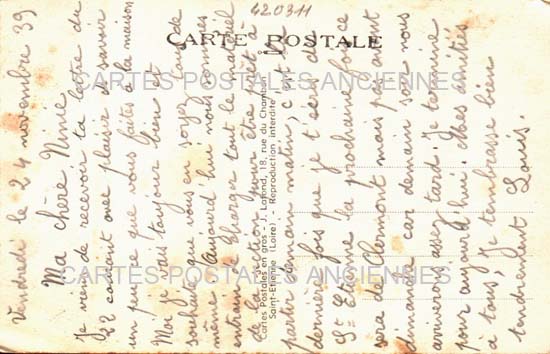 420311
CARTE POSTALE
CARTES POSTALES ANCIENNES
CARTES POSTALES ANCIENNES
Cartes Postales en gros - J. Lafond, 18, rue du Chambon
Saint-Etienne (Loire) - Reproduction interdite
Vendredi le 24 novembre 39
Ma chère Ninie
Je viens de recevoir ta lettre du
22 courant avec plaisir de savoir
un peu ce que vous faites à la maison
Moi je vais toujours bien et
souhaite que vous en soyez tous de
même. Aujourd'hui nous sommes
entrain de charger tout le matériel
de la section pour être prêt à
partir demain matin, c'est la
dernière fois que je t'écris de
St Etienne la prochaine fois ce
sera de Clermont mais pas avant
dimanche car demain soir nous
arriverons assez tard. Je termine
pour aujourd'hui. Mes amitiés
à tous, Je t'embrasse bien
tendrement Louis.